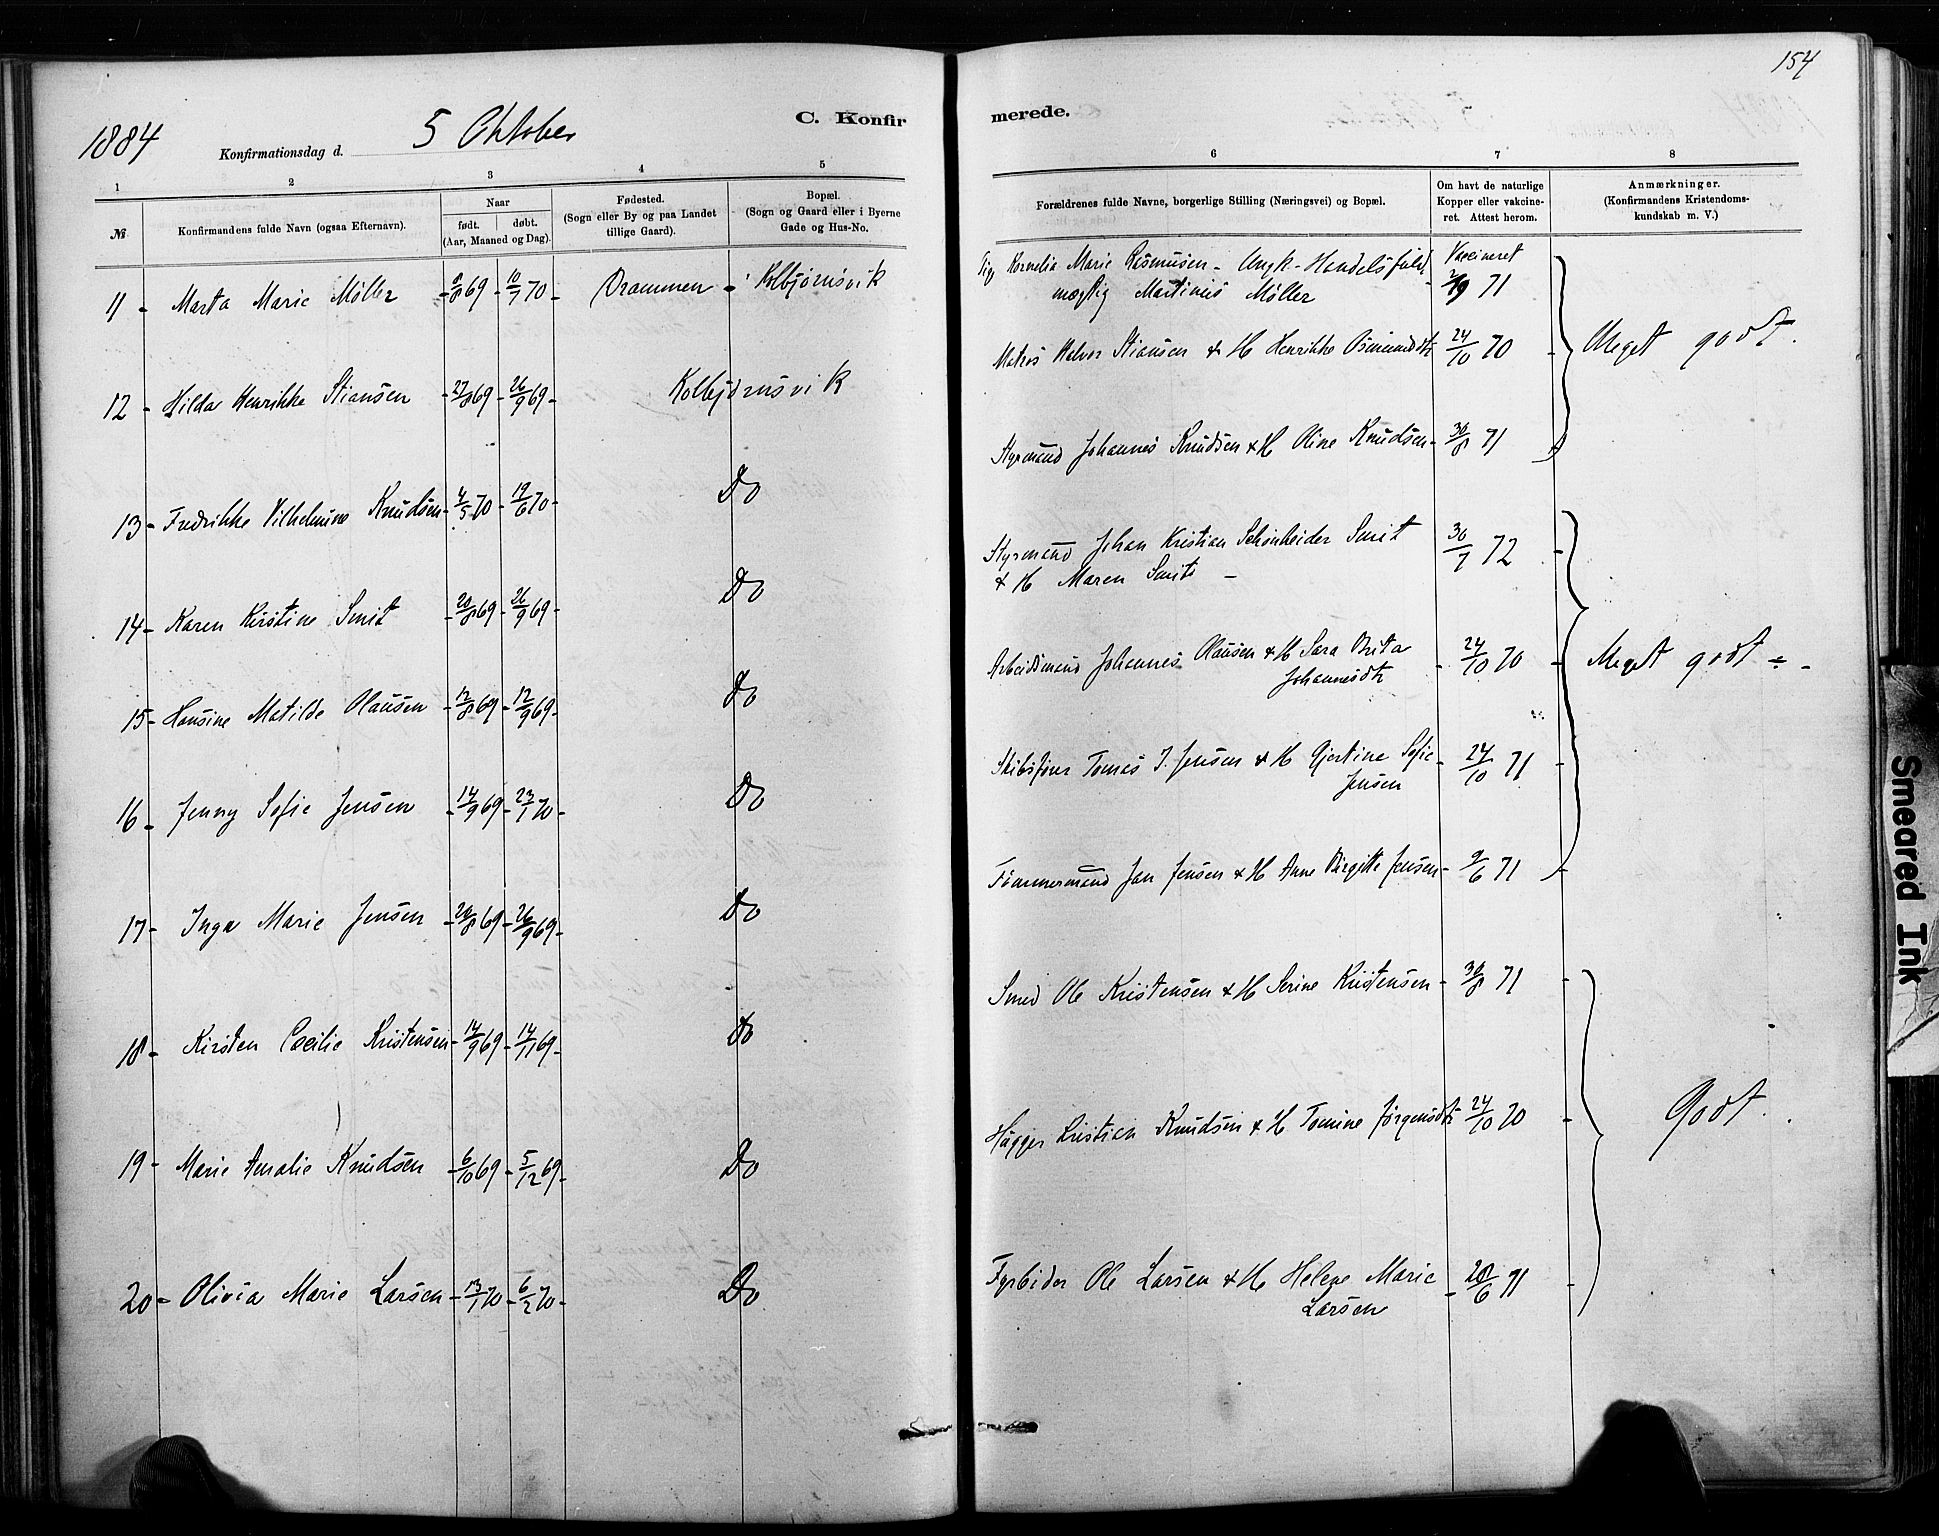 154
1884
Konfirmationsdag d. 5 Oktober
C. Konfirmerede.
1 2 3 4 5 6 7 8
№
Konfirmandens fulde Navn (ogsaa Efternavn).
Naar
født. døbt.
(Aar, Maaned og Dag).
Fødested.
(Sogn eller By og paa Landet
tillige Gaard).
Bopæl.
(Sogn og Gaard eller i Byerne
Gade og Hus-No.
Forældrenes fulde Navne, borgerlige Stilling (Næringsvei) og Bopæl.
Om havt de naturlige
Kopper eller vakcine-
ret. Attest herom.
Anmærkninger.
(Konfirmandens Kristendoms-
kundskab m. V.)
11 - Marta Marie Møller - 8/8 69 - 10/7 70 - Drammen - Kolbjørnsvik
Pige Kornelia Marie Rasmusen - Ungk - Handelsfuld-
mægtig Martinius Møller
Vaccineret
2/9 71
12 - Hilda Henrikke Stiansen - 27/8 69 - 26/9 69 - Kolbjørnsvik
Matros Halvor Stiansen & H Henrikke Osmundsdtr 24/10 70
Meget godt.
13 - Fredrikke Vilhelmine Knudsen - 4/5 70 - 19/6 70 - Do
Styrmand Johannes Knudsen & H Oline Knudsen - 30/8 71
14 - Karen Kirstine Smit - 20/8 69 - 26/9 69 - Do
Styrmand Johan Kristian Schønheider Smit
& H Maren Smit -
30/7 72 -
15 - Hansine Matilde Olausen - 12/8 69 - 12/9 69 - Do
Arbeidsmand Johannes Olausen & H Sara Brita
Johannesdtr
- 24/10 70 -
Meget godt -
16 - Jenny Sofie Jensen - 14/9 69 - 23/1 70 - Do
Skibsfører Tomas J. Jensen & H Gjertine Sofie
Jensen
- 24/10 71 -
17 - Inga Marie Jensen - 20/8 69 - 26/9 69 - Do
Tømmermand Jan Jensen & H Anne Birgitte Jensen - 9/6 71 -
18 - Kirsten Cecilie Kristensen - 14/9 69 - 14/11 69 - Do
Smed Ole Kristensen & H Serine Kristensen - 30/8 71 -
19 - Marie Amalie Knudsen - 6/10 69 - 5/12 69 - Do
Hugger Kristian Knudsen & H Tomine Jørgensdtr 24/10 70 -
Godt.
20 - Olivia Marie Larsen - 13/1 70 - 6/2 70 - Do
Fyrbøder Ole Larsen & H Helene Marie
Larsen
- 28/6 71 -
Smeared Ink